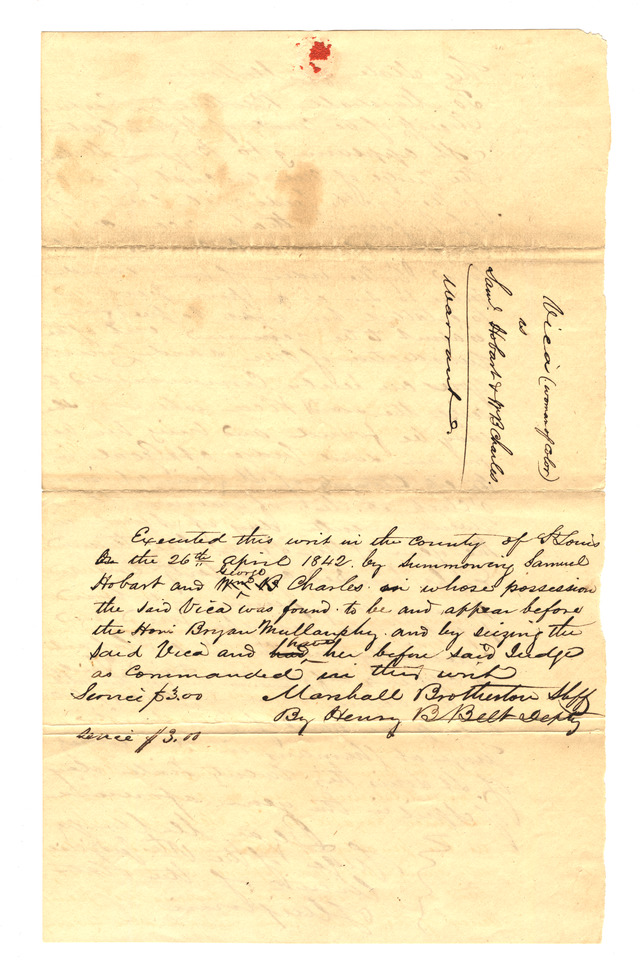 Vica (woman of Color)
vs
Saml. Hobart & W B Charles.
Warrant.
Executed this writ in the county of St Louis
On the 26th april 1842 by summoning Samuel
Hobart and Wm George B Charles in whose possession
the said Vica was found to be and appear before
the Hon: Bryan Mullanphy and by seizing the
said Vica and had have her before said Judge
as commanded in this writ
Service $3.00 Marshall Brotherton Shff
By Henry B Belt Depty
Service $3.00